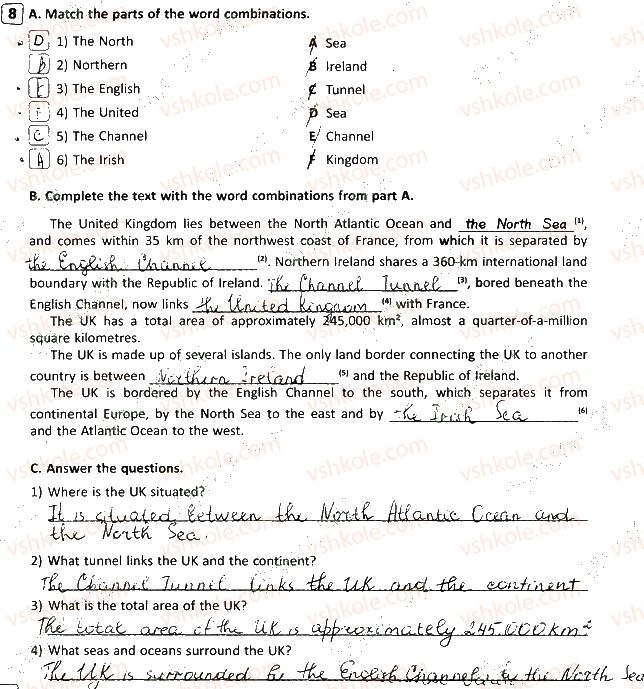 8 A. Match the parts of the word combinations.
D 1) The North A Sea
B 2) Northern B Ireland
E 3) The English C Tunnel
F 4) The United D Sea
C 5) The Channel E Channel
A 6) The Irish F Kingdom
B. Complete the text with the word combinations from part A.
The United Kingdom lies between the North Atlantic Ocean and the North Sea (1),
and comes within 35 km of the northwest coast of France, from which it is separated by
the English Channel (2). Northern Ireland shares a 360-km international land
boundary with the Republic of Ireland. The Channel Tunnel (3), bored beneath the
English Channel, now links the United Kingdom (4) with France.
The UK has a total area of approximately 245,000 km², almost a quarter-of-a-million
square kilometres.
The UK is made up of several islands. The only land border connecting the UK to another
country is between Northern Ireland (5) and the Republic of Ireland.
The UK is bordered by the English Channel to the south, which separates it from
continental Europe, by the North Sea to the east and by the Irish Sea (6)
and the Atlantic Ocean to the west.
C. Answer the questions.
1) Where is the UK situated?
It is situated between the North Atlantic Ocean and
the North Sea.
2) What tunnel links the UK and the continent?
The Channel Tunnel links the UK and the continent
3) What is the total area of the UK?
The total area of the UK is approximately 245.000 km²
4) What seas and oceans surround the UK?
The UK is surrounded by the English Channel, by the North Sea
vshkole.com